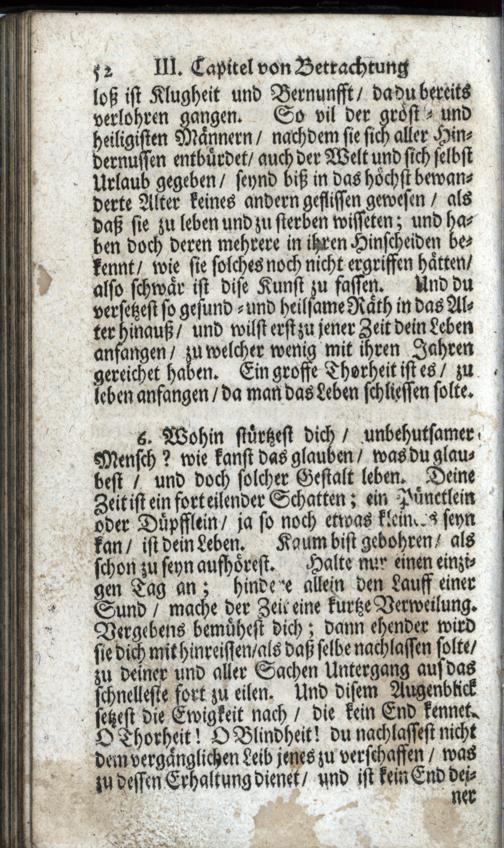 52 III. Capitel von Betrachtung
loß ist Klugheit und Vernunfft / da du bereits
verlohren gangen. So vil der gröst- und
heiligisten Männern / nachdem sie sich aller Hin-
dernussen entbürdet / auch der Welt und sich selbst
Urlaub gegeben / seynd biß in das höchst bewan-
derte Alter keines andern geflissen gewesen / als
daß sie zu leben und zu sterben wisseten; und ha-
ben doch deren mehrere in ihren Hinscheiden be-
kennt / wie sie solches noch nicht ergriffen hätten /
also schwär ist dise Kunst zu fassen. Und du
versetzest so gesund- und heilsame Räth in das Al-
ter hinauß / und wilst erst zu jener Zeit dein Leben
anfangen / zu welcher wenig mit ihren Jahren
gereichet haben. Ein grosse Thorheit ist es / zu
leben anfangen / da man das Leben schliessen solte.
6. Wohin stürtzest dich / unbehutsamer
Mensch? wie kanst das glauben / was du glau-
best / und doch solcher Gestalt leben. Deine
Zeit ist ein fort eilender Schatten; ein Pünctlein
oder Düpfflein / ja so noch etwas seyn
kan / ist dein Leben. Kaum bist gebohren / als
schon zu seyn aufhörest. Halte nur einen einzi-
gen Tag an; hindere allein den Lauff einer
Stund / mache der Zeit eine kurtze Verweilung.
Vergebens bemühest dich; dann ehender wird
sie dich mit hinreissen / als daß selbe nachlassen solte /
zu deiner und aller Sachen Untergang auf das
schnelleste fort zu eilen. Und disem Augenblick
setzest die Ewigkeit nach / die kein End kennet.
O Thorheit! O Blindheit! du nachlassest nicht
dem vergänglichen Leib jenes zu verschaffen / was
zu dessen Erhaltung dienet / und ist kein End dei-
ner